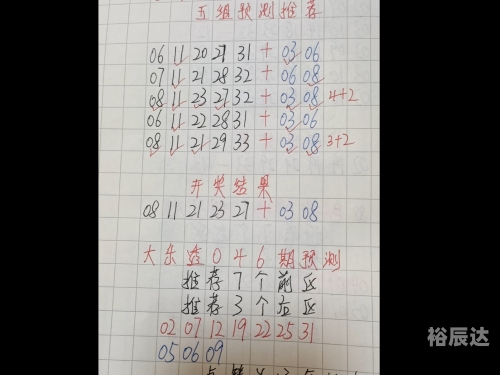 五组预测推荐
06 11 20 21 31 + 03 06
07 11 21 28 32 + 06 08
08 11 23 27 32 + 03 08 4+2
06 11 22 28 31 + 03 06
08 11 21 29 33 + 03 08 3+2
开奖结果
08 11 21 23 27 + 03 08
大乐透046期预测
推荐7个前区
推荐3个后区
02 07 12 19 22 25 31
05 06 09
裕辰达